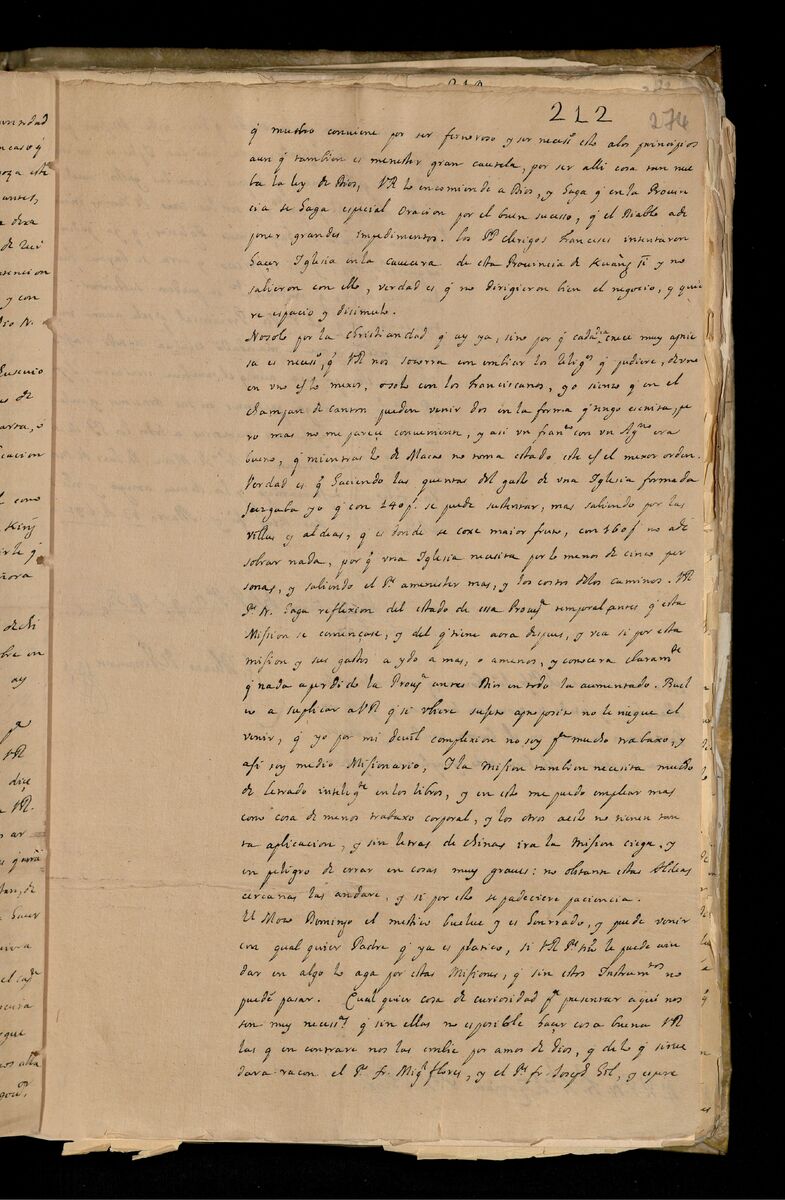 212
274
q̃ mucho conviene por ser fervoroso y ser necesº esto alos principios
aun q̃ tambien es menester gran cautela, por ser alli cosa tan nue
ba la ley de Dios, VR lo encomiende a Dios, y haga q̃ en la Provin
cia se haga especial oracion por el buen suceso, q̃ el Diablo a de
poner grandes impedimentos. Los PPes clerigos franceses intentaron
haçer Iglesia en la cavecera de esta Provincia de Kuang Si y no
salieron con ello, verdad es q̃ no dirigieron bien el negocio, q̃ quie
re espacio y disimulo.
No solo por la christiandad q̃ ay ya, sino por q̃ cada dia crece muy aprie
sa es necesº, q̃ VR nos socorra con embiar los Religºs q̃ pudiere, de uno
en uno es lo mexor, o solo con los franciscanos, yo siento q̃ en el
champan de canton pueden venir dos en la forma q̃ tengo escrita, pe
ro mas no me parece conveniente, y asi un franco con un Agno era
bueno, q̃ mientras lo de Macao no toma estado este es el mexor orden.
Verdad es q̃ haciendo las quentas del gasto de una Iglesia formada
juzgaba yo q̃ con 140 p. se puede sustentar, mas saliendo por las
villas y aldeas, q̃ es donde se coxe maior fruto, con 160 p no a de
sobrar nada, por q̃ una Iglesia necesita por lo menos de cinco per
sonas, y saliendo el Pe a menester mas, y los costos delos caminos. VR
Pe N. haga reflexion del estado de esa Provª temporal antes q̃ esta
Mission se començase, y del q̃ tiene aora despues, y vea si por esta
mission y sus gastos a ydo a mas, o a menos, y conocera claramte
q̃ nada a perdido la Provª antes Dios en todo la aumentado. Buel
vo a suplicar a VR q̃ si ubiere sugeto aproposito no le niegue el
venir, q̃ yo por mi devil complexion no soy pª mucho trabaxo, y
asi soy medio Misionario, I la Mission tambien necesita mucho
de letrado inteligte en los libros, y en esto me puedo emplear mas
como cosa de menos trabaxo corporal, y los otros a esto no tienen tan
ta aplicacion, y sin letras de chinas ira la Mission ciega, y
en peligro de errar en cosas muy graves: no obstante estas Aldeas
cercanas las andare, y si por esto se padeciere paciencia.
El Moço Domingo el mestiço buelve y es honrrado, y puede venir
con qual quier Padre q̃ ya es platico, si VR Pe nro le puede aiu
dar en algo lo aga por estas Missiones, q̃ sin estos Instrumtos no
puede pasar. Qual quier cosa de curiosidad pª presentar aqui nos
son muy necesªs q̃ sin ellas no es posible haçer cosa buena VR
las q̃ encontrare nos las embie por amor de Dios, q̃ de lo q̃ sirve
dara racon el Pe fr. Migl flores, y el Pe fr. Joseph Gil, y espere